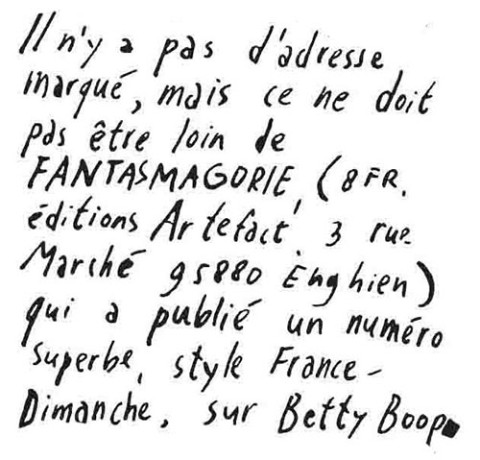 Il n'y a pas d'adresse
marqué, mais ce ne doit
pas être loin de
FANTASMAGORIE, (8 FR.
éditions Artefact, 3 rue
Marché 95880 Enghien)
qui a publié un numéro
superbe, style France-
Dimanche, sur Betty Boop.